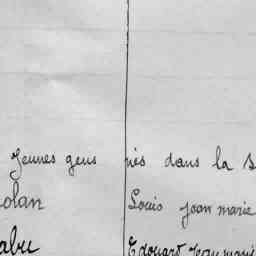 Jeunes gens nés dans la s
olan Louis Jean marie
abu Edouard Jean marie